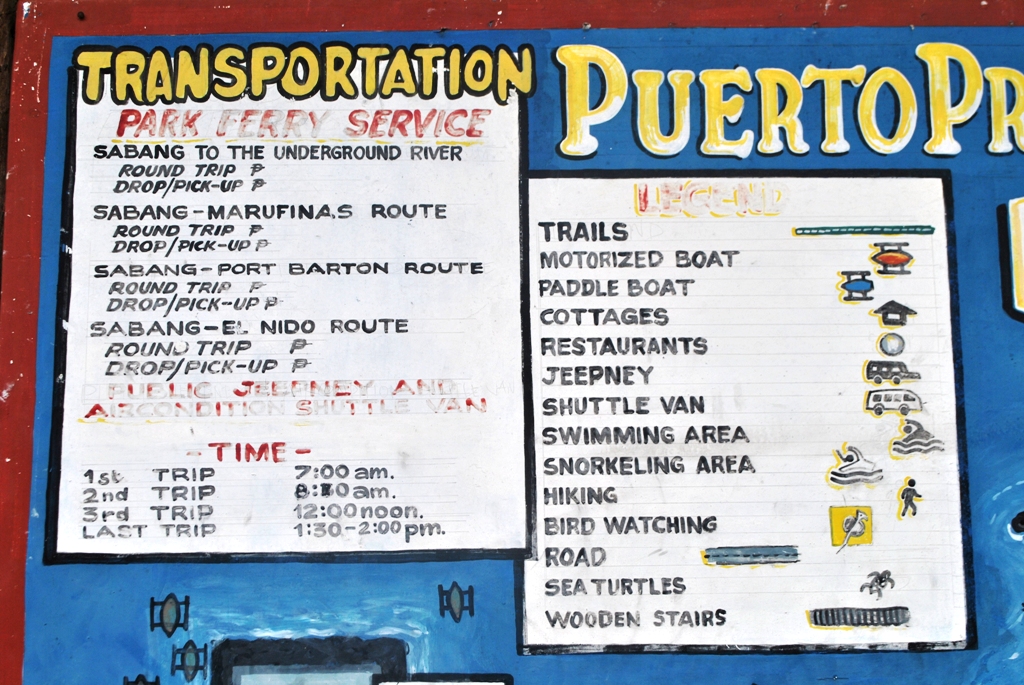 TRANSPORTATION
PARK FERRY SERVICE
SABANG TO THE UNDERGROUND RIVER
ROUND TRIP ₱
DROP/PICK-UP ₱
SABANG-MARUFINAS ROUTE
ROUND TRIP ₱
DROP/PICK-UP ₱
SABANG-PORT BARTON ROUTE
ROUND TRIP ₱
DROP/PICK-UP ₱
SABANG-EL NIDO ROUTE
ROUND TRIP ₱
DROP/PICK-UP ₱
PUBLIC JEEPNEY AND
AIRCONDITION SHUTTLE VAN
-TIME-
1st TRIP 7:00 am.
2nd TRIP am.
3rd TRIP 12:00 noon.
LAST TRIP 1:30-2:00 pm.
PUERTO PR
LEGEND
TRAILS
MOTORIZED BOAT
PADDLE BOAT
COTTAGES
RESTAURANTS
JEEPNEY
SHUTTLE VAN
SWIMMING AREA
SNORKELING AREA
HIKING
BIRD WATCHING
ROAD
SEA TURTLES
WOODEN STAIRS